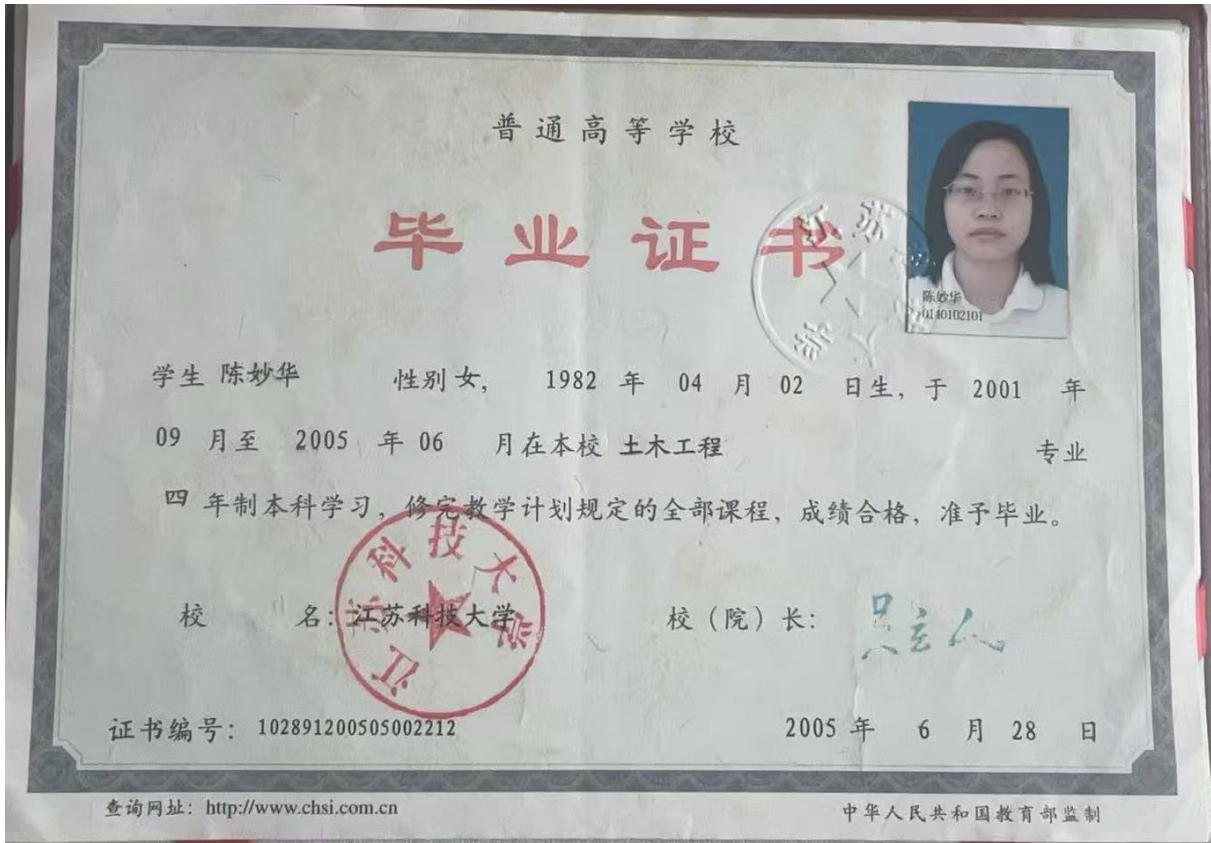 普通高等学校
毕业证书
江苏科技大学
陈妙华
0140102101
学生 陈妙华 性别 女, 1982 年 04 月 02 日生, 于 2001 年
09 月至 2005 年 06 月在本校 土木工程 专业
四 年制本科学习, 修完教学计划规定的全部课程, 成绩合格, 准予毕业。
江苏科技大学
校 名: 江苏科技大学 校(院)长:
证书编号: 102891200505002212 2005 年 6 月 28 日
查询网址: http://www.chsi.com.cn 中华人民共和国教育部监制